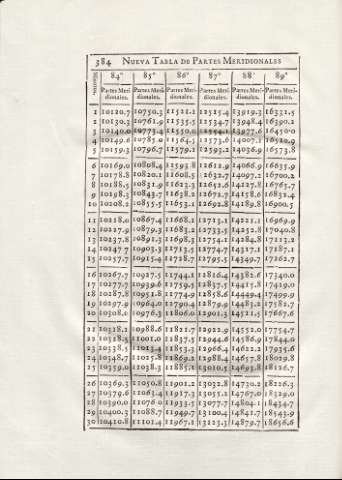 384 NUEVA TABLA DE PARTES MERIDIONALES
84° 85° 86° 87° 88° 89°
Partes Meri- Partes Meri- Partes Meri- Partes Meri- Partes Meri- Partes Meri-
dionales. dionales. dionales. dionales. dionales. dionales.
1 10120.7 10750.3 11521.1 12515.4 13919.3 16331.5
2 10130.3 10761.9 11535.5 12534.7 13948.4 16390.2
3 10140.0 10773.4 11550.0 12554.1 13977.6 16450.0
4 10149.6 10785.0 11564.5 12573.6 14007.1 16510.9
5 10159.3 10796.7 11579.1 12593.2 14036.9 16573.8
6 10169.0 10808.4 11593.8 12612.9 14066.9 16635.9
7 10178.8 10820.1 11608.5 12632.7 14097.2 16700.2
8 10188.5 10831.9 11623.3 12652.6 14127.8 16765.7
9 10198.3 10843.7 11638.2 12672.7 14158.6 16832.4
10 10208.2 10855.5 11653.1 12692.8 14189.8 16900.5
11 10218.0 10867.4 11668.1 12713.1 14221.1 16969.9
12 10227.9 10879.3 11683.2 12733.5 14252.8 17040.8
13 10237.8 10891.3 11698.3 12754.1 14284.8 17113.2
14 10247.7 10903.3 11713.5 12774.7 14317.1 17187.1
15 10257.7 10915.4 11728.7 12795.5 14349.7 17262.7
16 10267.7 10927.5 11744.1 12816.4 14382.6 17340.0
17 10277.7 10939.6 11759.5 12837.5 14415.8 17419.0
18 10287.8 10951.8 11774.9 12858.6 14449.4 17499.9
19 10297.9 10964.0 11790.4 12879.9 14483.2 17582.7
20 10308.0 10976.3 11806.0 12901.3 14517.5 17667.6
21 10318.2 10988.6 11821.7 12922.9 14552.0 17754.7
22 10328.3 11001.0 11837.5 12944.6 14586.9 17844.0
23 10338.5 11013.4 11853.3 12966.4 14622.2 17935.6
24 10348.7 11025.8 11869.2 12988.4 14657.8 18029.8
25 10359.0 11038.3 11885.1 13010.5 14693.8 18126.7
26 10369.3 11050.8 11901.2 13032.8 14730.2 18226.3
27 10379.6 11063.4 11917.3 13055.2 14767.0 18329.0
28 10390.0 11076.0 11933.5 13077.7 14804.1 18434.7
29 10400.3 11088.7 11949.7 13100.4 14841.7 18543.9
30 10410.8 11101.4 11967.1 13123.3 14879.7 18656.6